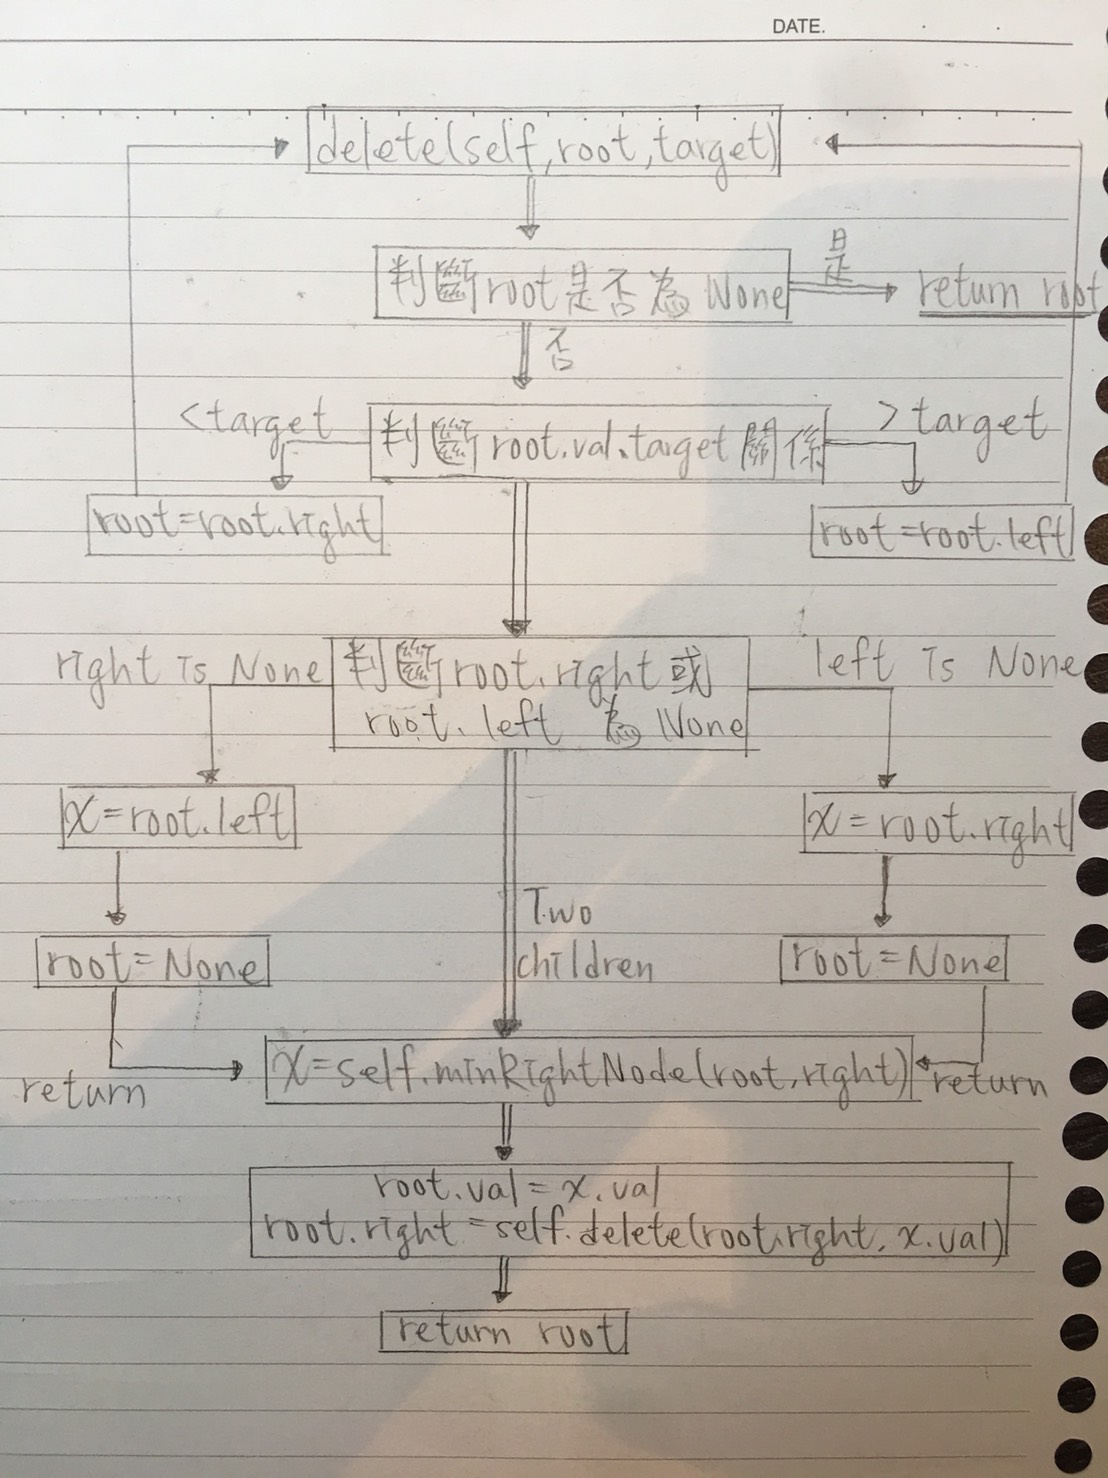 DATE.
delete(self,root,target)
判斷root是否為None
是
return root
否
<target
判斷root.val、target關係
>target
root=root.right
root=root.left
right is None
判斷root.right或
root.left 為 None
left is None
x=root.left
x=root.right
Two
children
root=None
root=None
x=self.minRightNode(root.right)
return
return
root.val=x.val
root.right=self.delete(root.right, x.val)
return root